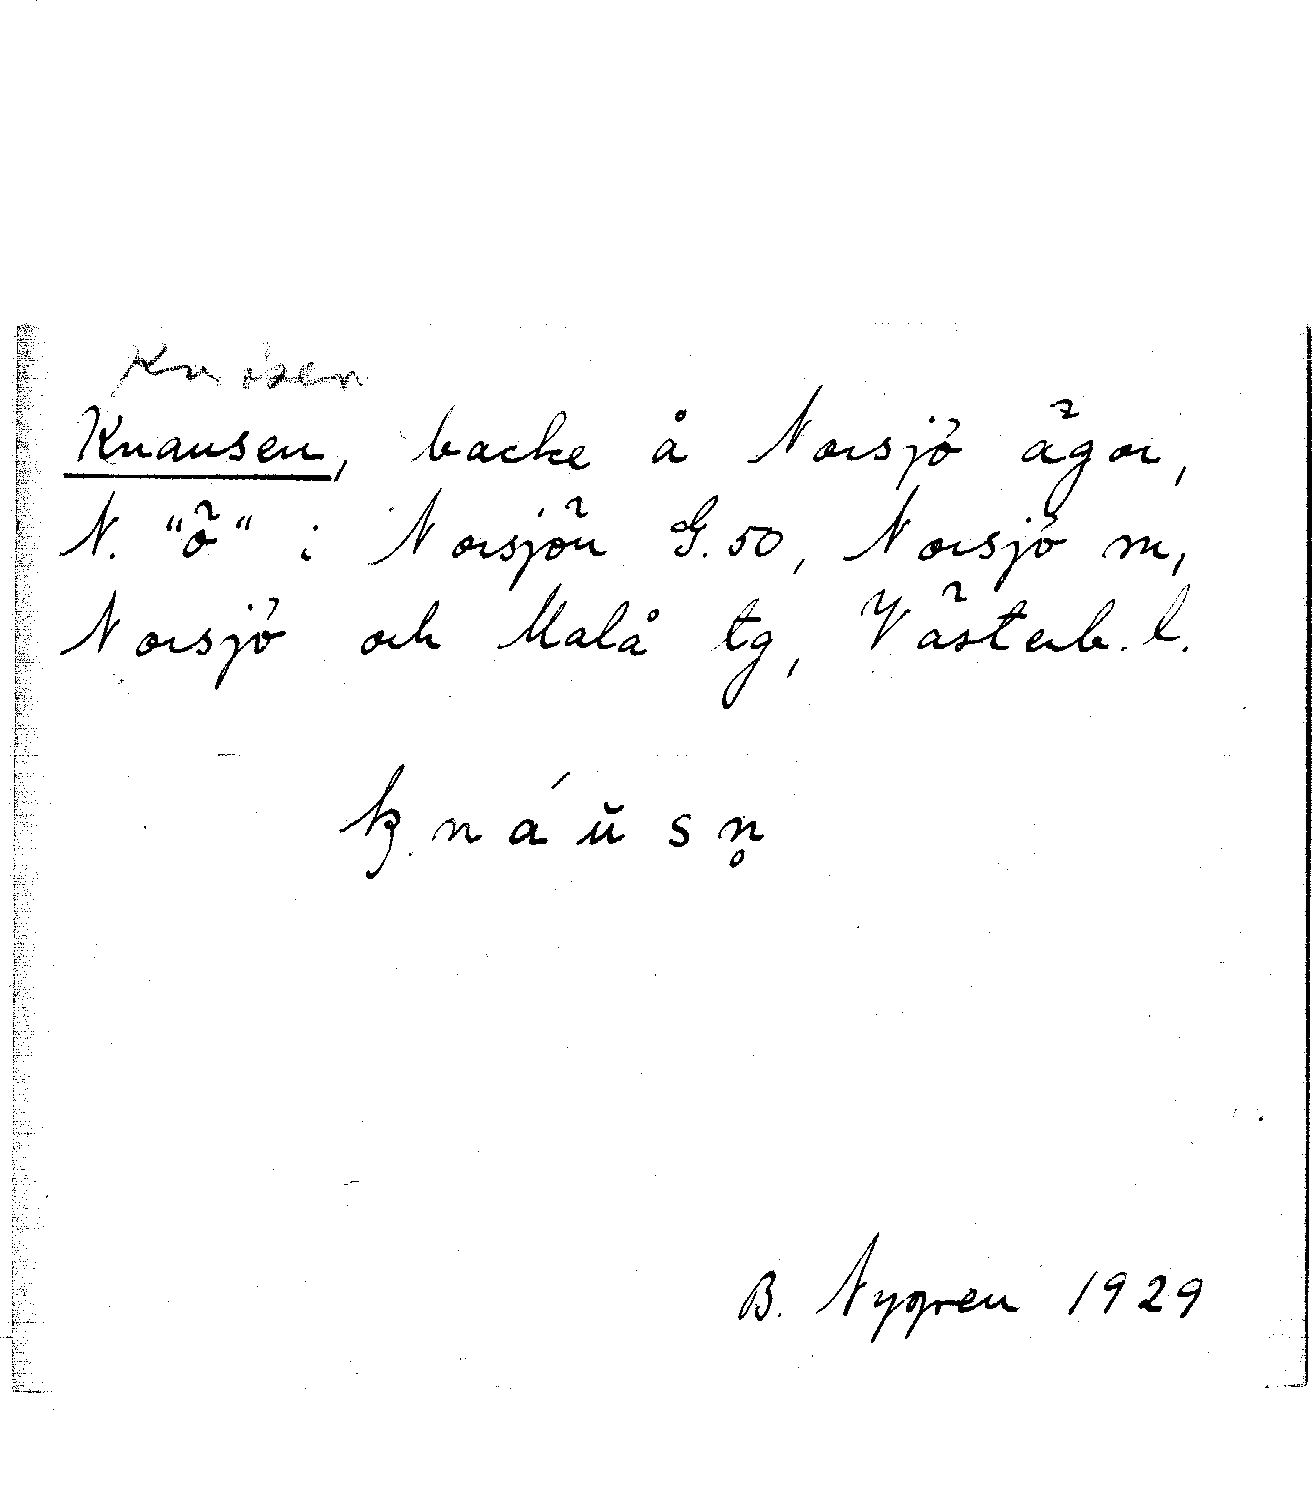 Knösen
Knausen, backe å Norsjö ägor,
N. "ö" i Norsjön G.50, Norsjö sn,
Norsjö och Malå tg, Västerb. l.
k̨ n á ŭ s n̥
B. Nygren 1929